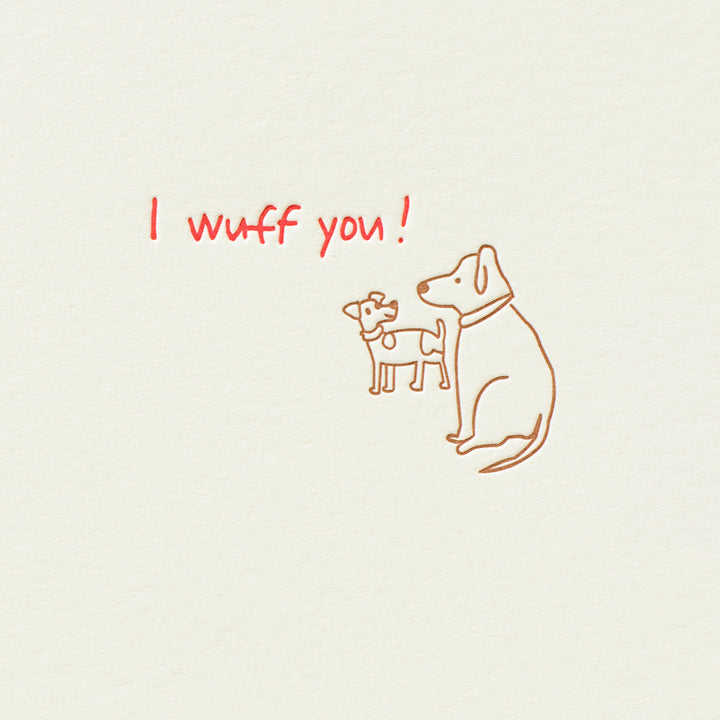 I wuff you!